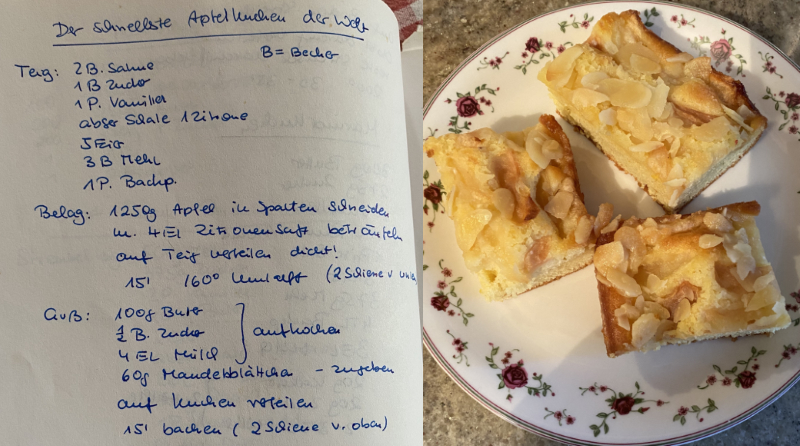 Der schnellste Apfelkuchen der Welt
B = Becher
Teig: 2 B. Sahne
1 B Zucker
1 P. Vanillez
abger Schale 1 Zitrone
5 Eier
3 B Mehl
1 P. Backp.
Belag: 1250g Äpfel in Spalten schneiden
m. 4 EL Zitronensaft beträufeln
auf Teig verteilen dicht!
15' 160° Umluft (2 Schiene v unten
Guß: 100g Butter
½ B. Zucker
4 EL Milch } aufkochen
60g Mandelblättchen - zugeben
auf Kuchen verteilen
15' backen (2 Schiene v. oben)